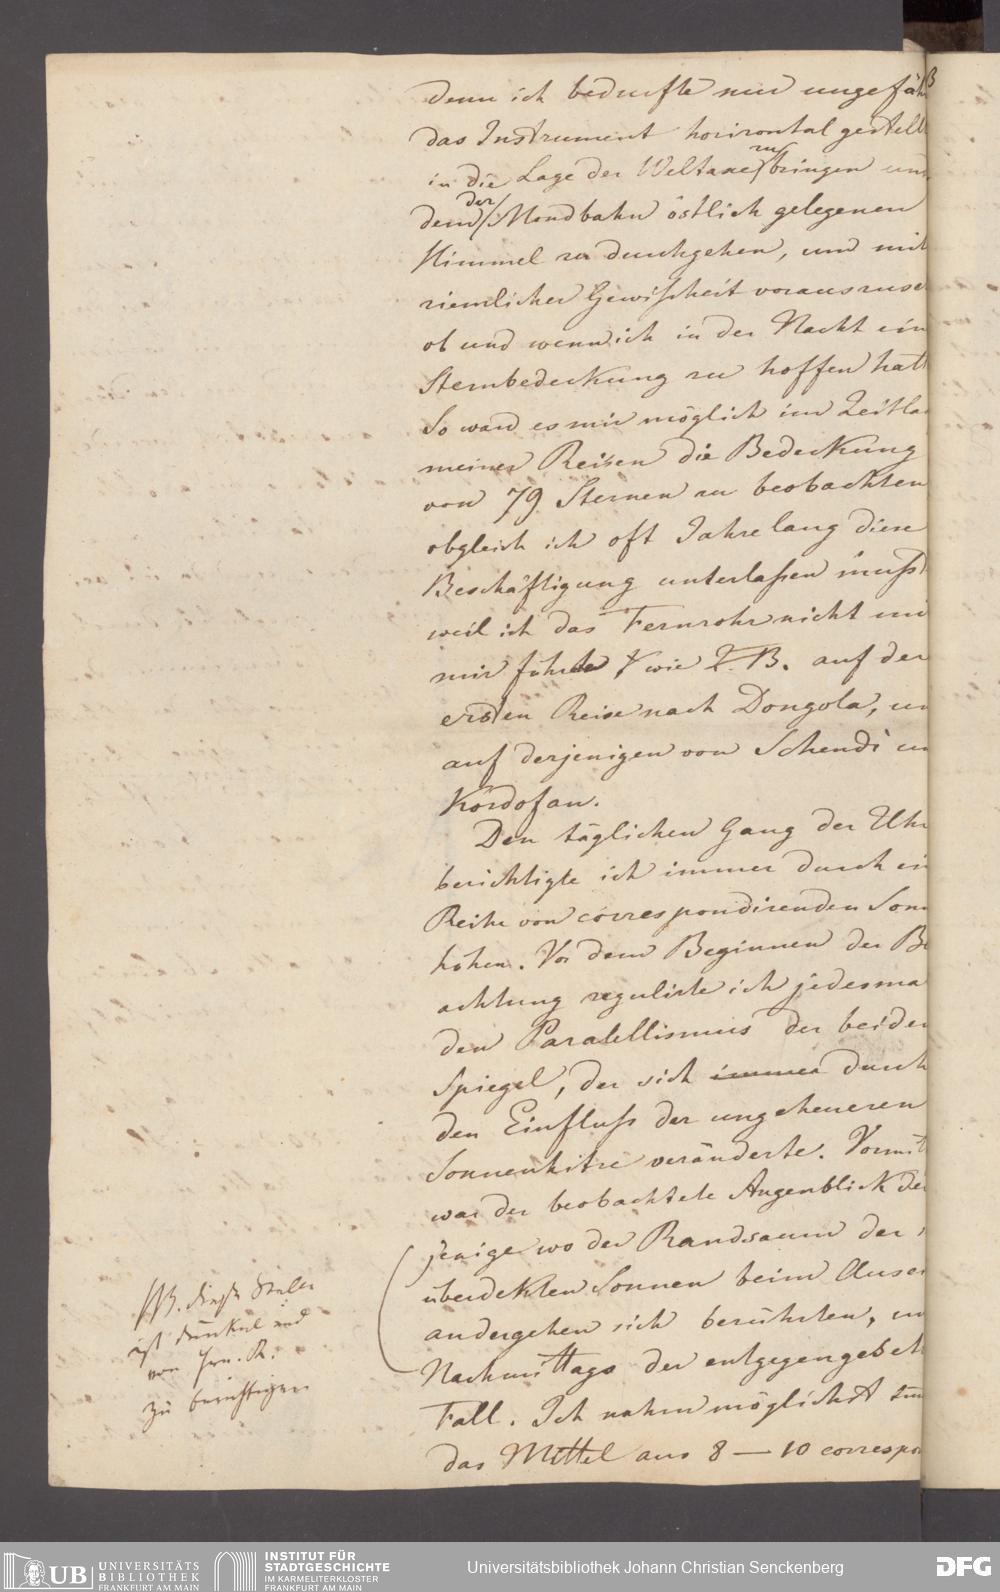 denn ich bedurfte nur ungefäh
B
das Instrument horizontal gestell
in die Lage der Weltaxe zu bringen un
dem der Mondbahn östlich gelegenen
Himmel zu durchgehen, und mit
ziemlicher Gewißheit vorauszuse
ob und wenn ich in der Nacht ein
Sternbedeckung zu hoffen hatt
So ward es mir möglich im Zeitla
meiner Reisen die Bedeckung
von 79 Sternen zu beobachten
obgleich ich oft Jahre lang diese
Beschäftigung unterlaßen mußt
weil ich das Fernrohr nicht mi
mir führte wie Z. B. auf der
ersten Reise nach Dongola, un
auf derjenigen von Schendi un
Kordofan.
Den täglichen Gang der Uhr
berichtigte ich immer durch ein
Reihe von correspondirenden Sonn
höhen. Vor dem Beginnen der Be
achtung regulirte ich jedesma
den Paralellismus der beiden
Spiegel, der sich immer durch
den Einfluß der ungeheueren
Sonnenhitze veränderte. Vormit
war der beobachtete Augenblick der
jenige wo der Randsaum der
überdekten Sonnen beim Ausei
andergehen sich berührten, un
Nachmittags der entgegengeset
Fall. Ich nahm möglichst
das Mittel aus 8 — 10 correspon
NB. diese Stelle
ist dunkel und
von Hrn. R.
zu berichtigen
UB UNIVERSITÄTS
BIBLIOTHEK
FRANKFURT AM MAIN
INSTITUT FÜR
STADTGESCHICHTE
IM KARMELITERKLOSTER
FRANKFURT AM MAIN
Universitätsbibliothek Johann Christian Senckenberg
DFG